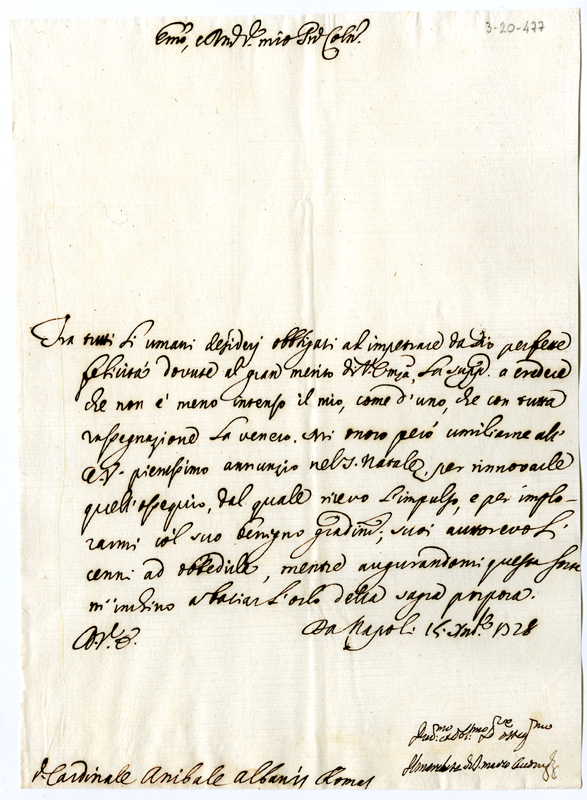 3-20-477
Emo, e Rmo Sr. mio Prõ Colmo.
Fra tutti li umani desiderj obbligati ad impetrare da Dio perfette
felicità dovute al gran merito di V. Emza, La supp.co a credere
che non è meno intenso il mio, come d'uno, che con tutta
rassegnazione La venero. Mi onoro però umiliarne all'
E.V. pienissimo annunzio nel S. Natale, per rinnovarle
quell'ossequio, dal quale ricevo l'impulso, e per implo-
rarmi col suo benigno gradimto, suoi autorevoli
cenni ad obbedirle, mentre augurandomi questa sorte
m'inchino a baciar l'orlo della sagra porpora.
D.V.E. Da Napoli 15. Xmbre 1728
Il Marchese di S. Marco
Sr Cardinale Anibale Albani Roma